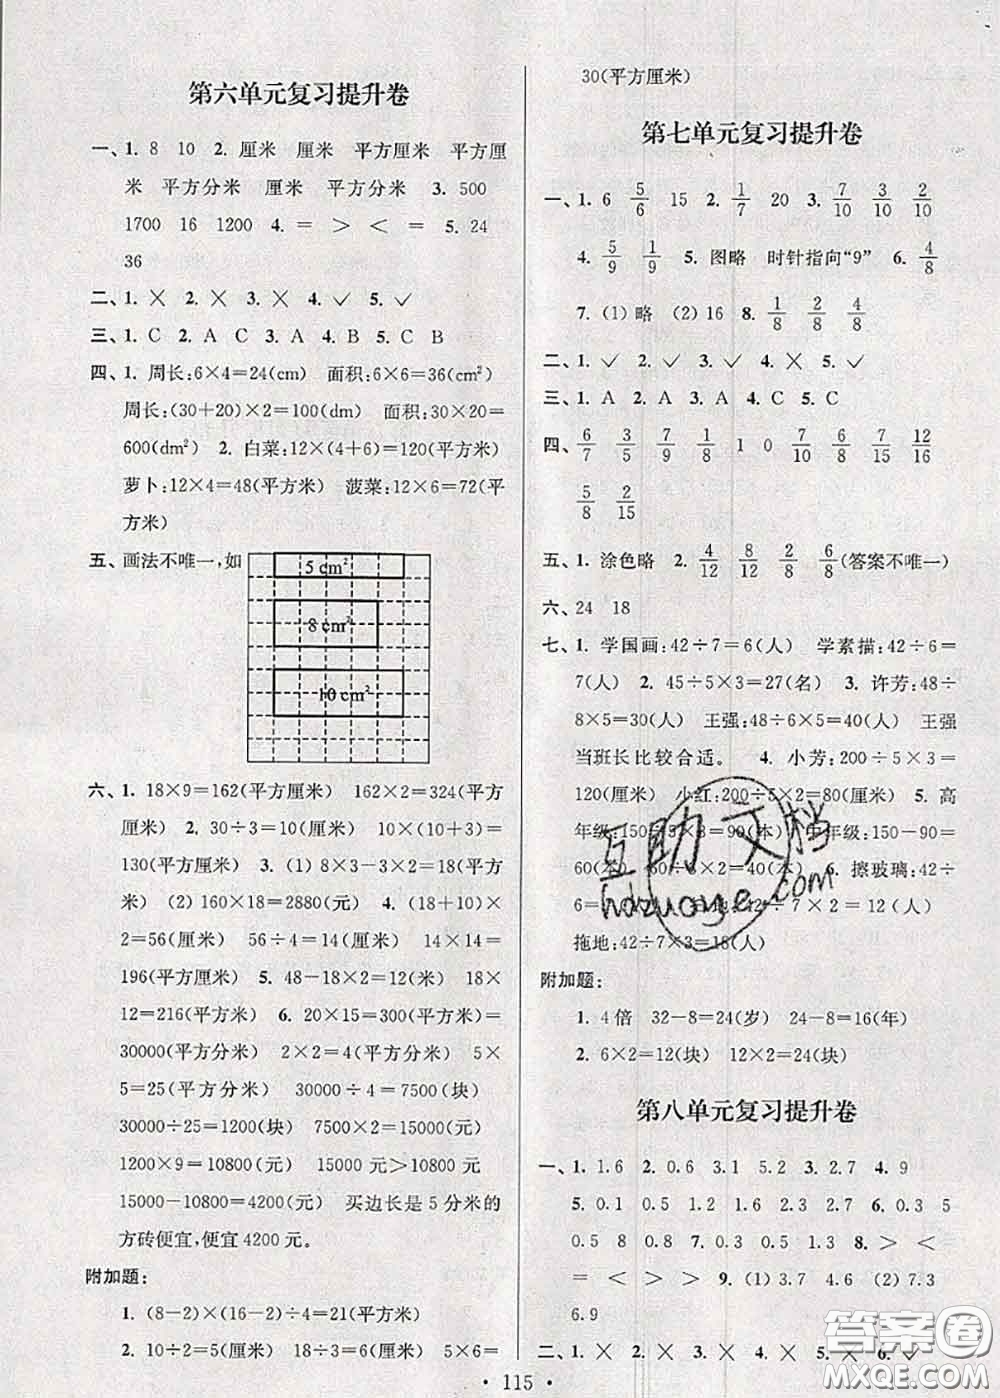 第六单元复习提升卷
一、1. 8 10 2. 厘米 厘米 平方厘米 平方厘
米 平方分米 厘米 平方分米 3. 500
1700 16 1200 4. = > < = 5. 24
36
二、1. × 2. × 3. × 4. ✓ 5. ✓
三、1. C 2. A C 3. A 4. B 5. C B
四、1. 周长:6×4=24(cm) 面积:6×6=36(cm²)
周长:(30+20)×2=100(dm) 面积:30×20=
600(dm²) 2. 白菜:12×(4+6)=120(平方米)
萝卜:12×4=48(平方米) 菠菜:12×6=72(平
方米)
五、画法不唯一,如
5 cm²
8 cm²
10 cm²
六、1. 18×9=162(平方厘米) 162×2=324(平方
厘米) 2. 30÷3=10(厘米) 10×(10+3)=
130(平方厘米) 3. (1) 8×3-3×2=18(厘
米) (2) 160×18=2880(元) 4. (18+10)×
2=56(厘米) 56÷4=14(厘米) 14×14=
196(平方厘米) 5. 48-18×2=12(米) 18×
12=216(平方米) 6. 20×15=300(平方米)=
30000(平方分米) 2×2=4(平方分米) 5×
5=25(平方分米) 30000÷4=7500(块)
30000÷25=1200(块) 7500×2=15000(元)
1200×9=10800(元) 15000元>10800元
15000-10800=4200(元) 买边长是5分米的
方砖便宜,便宜4200元。
附加题:
1. (8-2)×(16-2)÷4=21(平方米)
2. 10÷2=5(厘米) 5×5=25(厘米) 5×6=
30(平方厘米)
第七单元复习提升卷
一、1. 6 5/6 15 2. 1/7 20 3. 7/10 3/10 2/10
4. 5/9 1/9 5. 图略 时针指向“9” 6. 4/8
7. (1) 略 (2) 16 8. 1/8 2/8 4/8
二、1. ✓ 2. ✓ 3. ✓ 4. × 5. ✓
三、1. A 2. A 3. A 4. C 5. C
四、6/7 3/5 7/9 1/8 1 0 7/10 6/8 7/15 12/16
5/8 2/15
五、1. 涂色略 2. 4/12 8/12 2/8 6/8(答案不唯一)
六、24 18
七、1. 学国画:42÷7=6(人) 学素描:42÷6=
7(人) 2. 45÷5×3=27(名) 3. 许芳:48÷
8×5=30(人) 王强:48÷6×5=40(人) 王强
当班长比较合适。 4. 小芳:200÷5×3=
120(厘米) 小红:200÷5×2=80(厘米) 5. 高
年级:150÷5×3=90(本) 中年级:150-90=
60(本) 60÷3×2=40(本) 6. 擦玻璃:42÷
7×2=12(人) 42÷7×2=12(人)
拖地:42÷7×3=18(人)
附加题:
1. 4倍 32-8=24(岁) 24-8=16(年)
2. 6×2=12(块) 12×2=24(块)
第八单元复习提升卷
一、1. 1.6 2. 0.6 3.1 5.2 3. 2.7 4. 9
5. 0.1 0.5 1.8 6. 1.9 7. 0.9 0.3 5
0.5 8 0.4 0.7 2.5 8. > > <
= < > > 9. (1) 3.7 4.6 (2) 7.3
6.9
二、1. × 2. × 3. × 4. × 5. × 6. ✓
115
互助文档
hdzuoye.com
答案圈
MXQE.COM